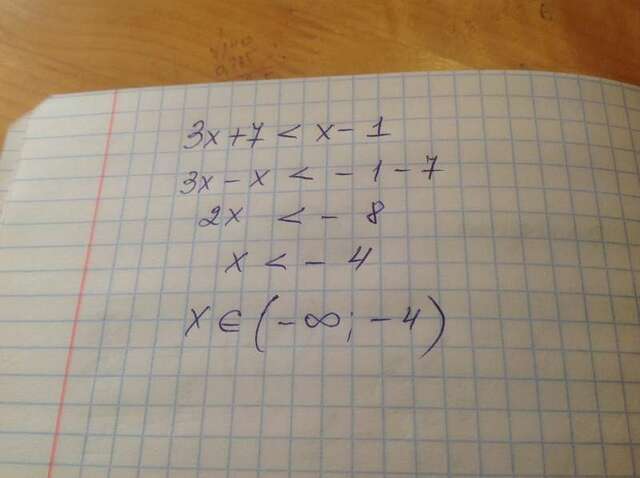 3x+7 < x-1
3x-x < -1-7
2x < -8
x < -4
x ∈ (-∞; -4)